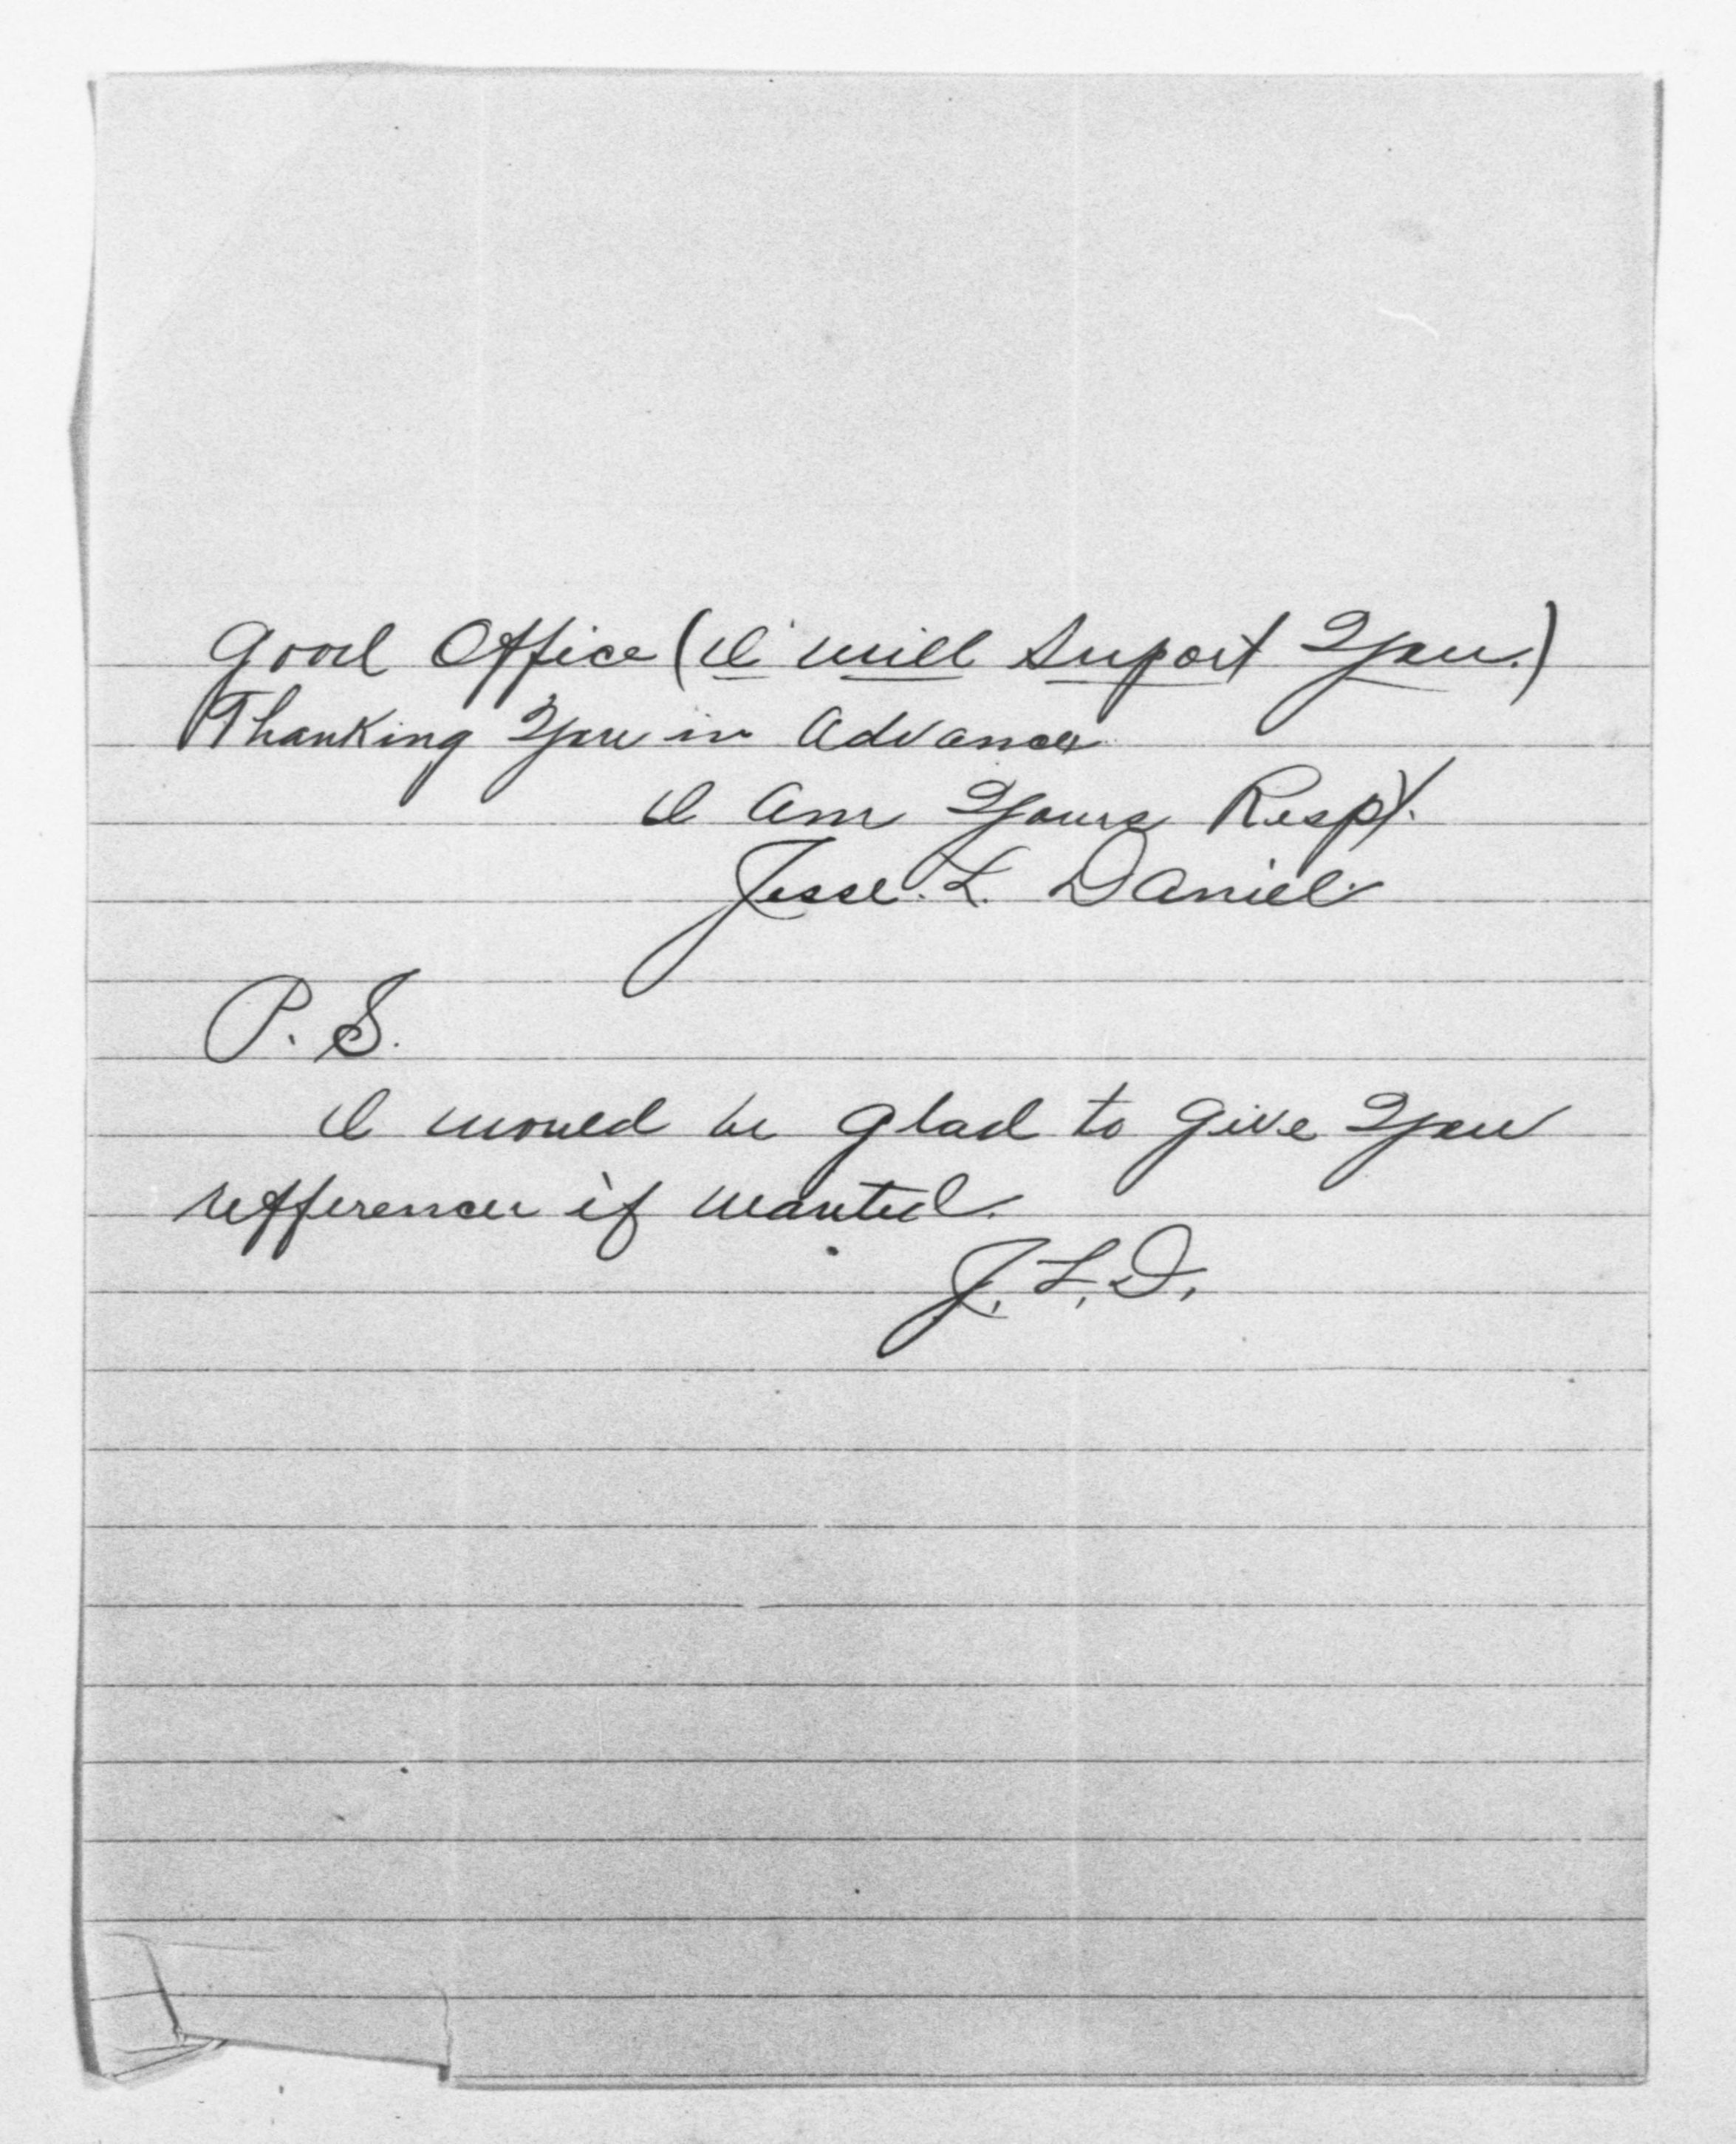 good Office (I will Suport You.)
Thanking You in Advance
I Am Yours Respt.
Jesse. L. Daniel.
P. S.
I would be glad to give You
refference if wanted.
J. L. D.